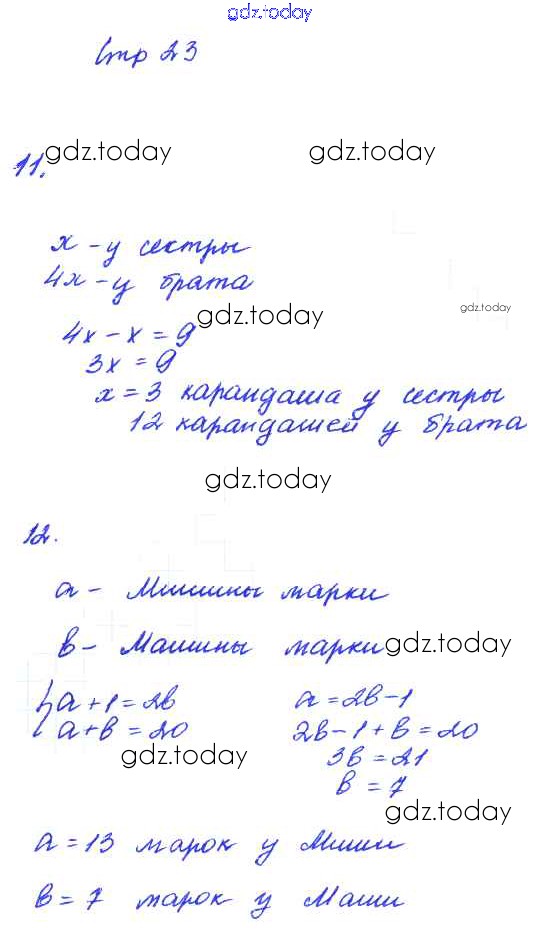 gdz.today
Стр 23
11.
gdz.today gdz.today
x - у сестры
4x - у брата
gdz.today gdz.today
4x - x = 9
3x = 9
x = 3 карандаша у сестры
12 карандашей у брата
gdz.today
12.
a - Мишины марки
b - Машины марки
gdz.today
{ a + 1 = 2b a = 2b - 1
{ a + b = 20 2b - 1 + b = 20
gdz.today 3b = 21
b = 7
gdz.today
a = 13 марок у Миши
b = 7 марок у Маши